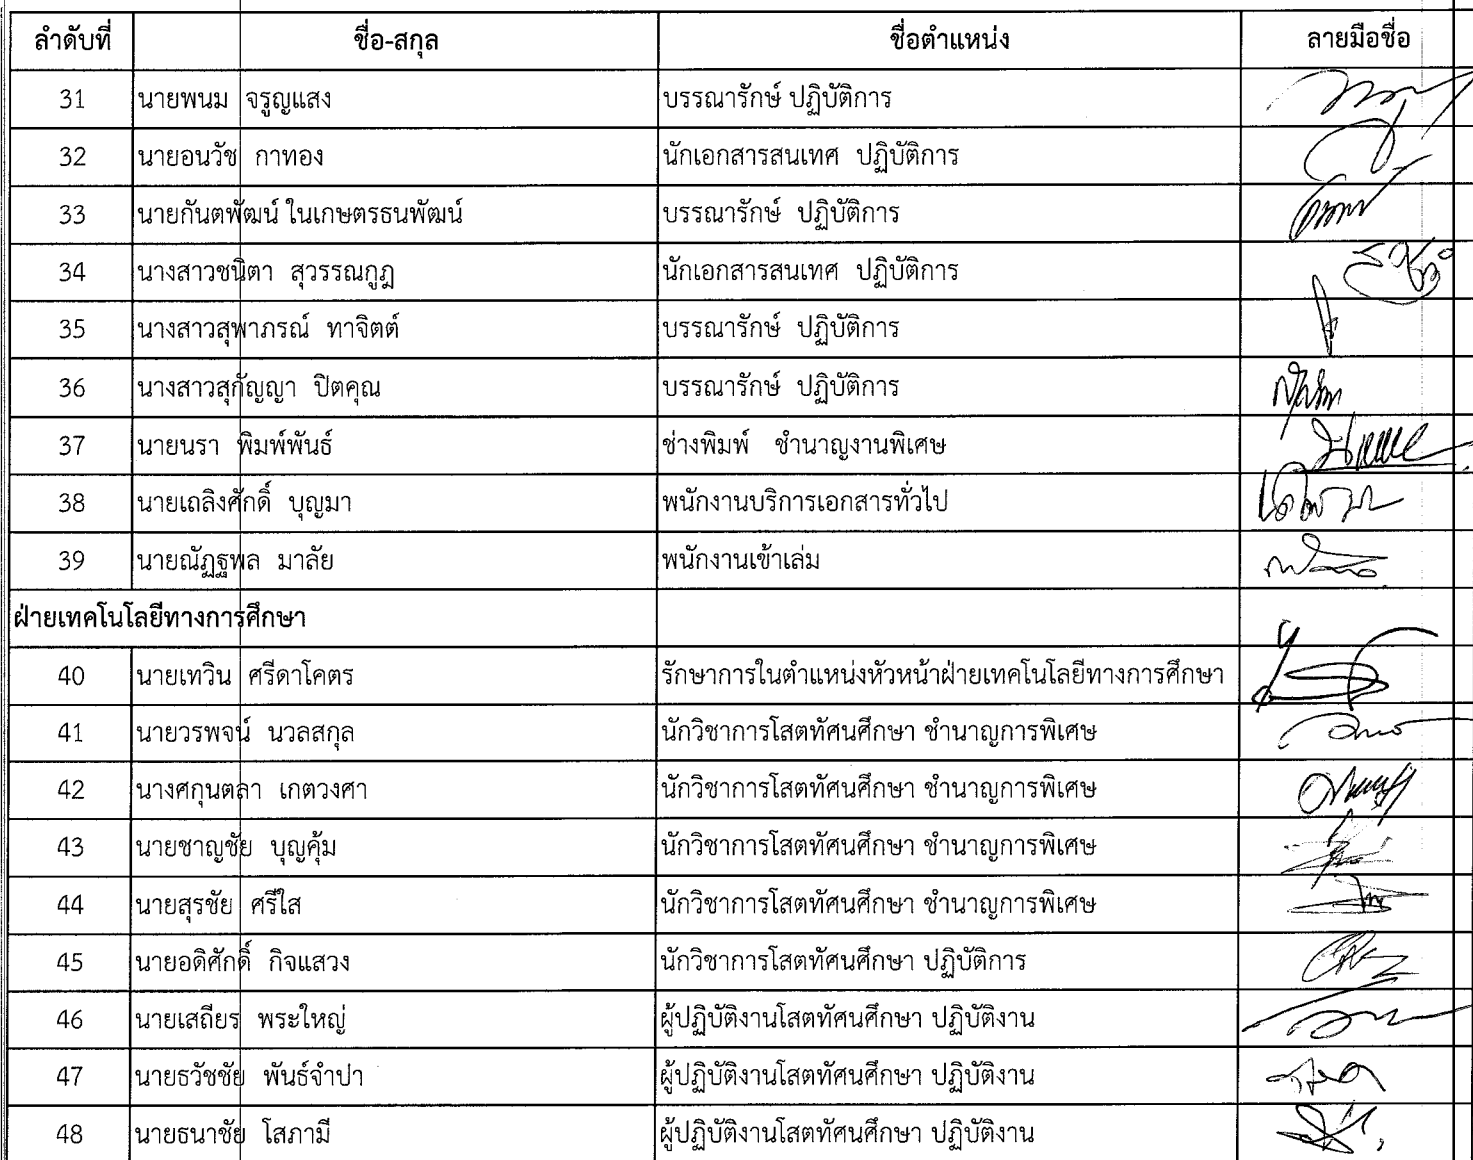 ลำดับที่ ชื่อ-สกุล ชื่อตำแหน่ง ลายมือชื่อ
31 นายพนม จรูญแสง บรรณารักษ์ ปฏิบัติการ
32 นายอนวัช กาทอง นักเอกสารสนเทศ ปฏิบัติการ
33 นายกันตพัฒน์ ในเกษตรธนพัฒน์ บรรณารักษ์ ปฏิบัติการ
34 นางสาวชนิตา สุวรรณกูฏ นักเอกสารสนเทศ ปฏิบัติการ
35 นางสาวสุพาภรณ์ ทาจิตต์ บรรณารักษ์ ปฏิบัติการ
36 นางสาวสุกัญญา ปิตคุณ บรรณารักษ์ ปฏิบัติการ
37 นายนรา พิมพ์พันธ์ ช่างพิมพ์ ชำนาญงานพิเศษ
38 นายเถลิงศักดิ์ บุญมา พนักงานบริการเอกสารทั่วไป
39 นายณัฏฐพล มาลัย พนักงานเข้าเล่ม
ฝ่ายเทคโนโลยีทางการศึกษา
40 นายเทวิน ศรีดาโคตร รักษาการในตำแหน่งหัวหน้าฝ่ายเทคโนโลยีทางการศึกษา
41 นายวรพจน์ นวลสกุล นักวิชาการโสตทัศนศึกษา ชำนาญการพิเศษ
42 นางศกุนตลา เกตวงศา นักวิชาการโสตทัศนศึกษา ชำนาญการพิเศษ
43 นายชาญชัย บุญคุ้ม นักวิชาการโสตทัศนศึกษา ชำนาญการพิเศษ
44 นายสุรชัย ศรีใส นักวิชาการโสตทัศนศึกษา ชำนาญการพิเศษ
45 นายอดิศักดิ์ กิจแสวง นักวิชาการโสตทัศนศึกษา ปฏิบัติการ
46 นายเสถียร พระใหญ่ ผู้ปฏิบัติงานโสตทัศนศึกษา ปฏิบัติงาน
47 นายธวัชชัย พันธ์จำปา ผู้ปฏิบัติงานโสตทัศนศึกษา ปฏิบัติงาน
48 นายธนาชัย โสภามี ผู้ปฏิบัติงานโสตทัศนศึกษา ปฏิบัติงาน